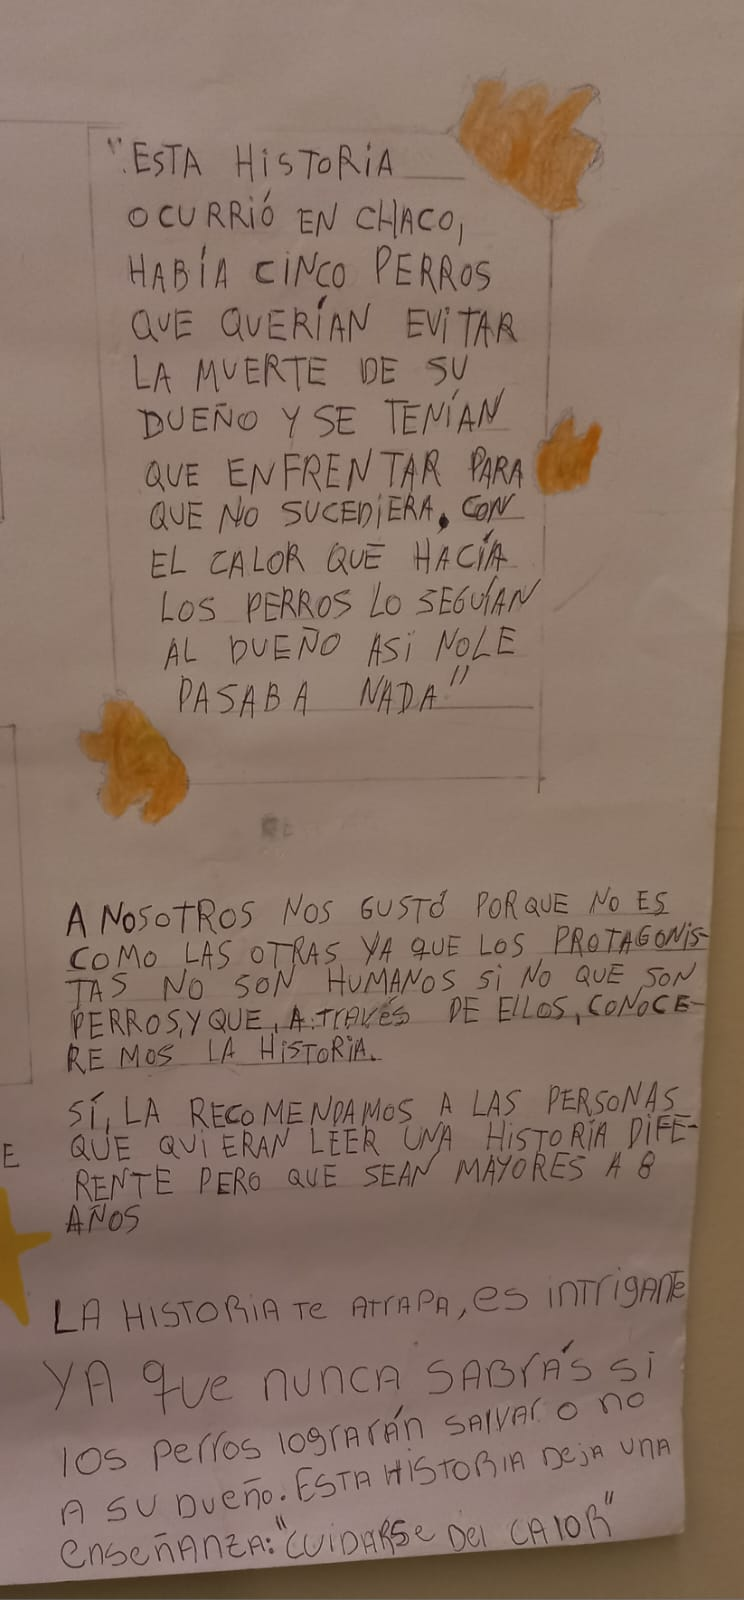 "ESTA HISTORIA
OCURRIÓ EN CHACO,
HABÍA CINCO PERROS
QUE QUERÍAN EVITAR
LA MUERTE DE SU
DUEÑO Y SE TENÍAN
QUE ENFRENTAR PARA
QUE NO SUCEDIERA, CON
EL CALOR QUE HACÍA
LOS PERROS LO SEGUÍAN
AL DUEÑO ASI NOLE
PASABA NADA"
A NOSOTROS NOS GUSTÓ PORQUE NO ES
COMO LAS OTRAS YA QUE LOS PROTAGONIS-
TAS NO SON HUMANOS SI NO QUE SON
PERROS, Y QUE, A TRAVÉS DE ELLOS, CONOCE-
REMOS LA HISTORIA.
SÍ, LA RECOMENDAMOS A LAS PERSONAS
QUE QUIERAN LEER UNA HISTORIA DIFE-
RENTE PERO QUE SEAN MAYORES A 8
AÑOS
E
LA HISTORIA TE ATRAPA, es INTRIGANTE
YA que NUNCA SABRÁS SI
los perros lograrán salvar o no
A SU Dueño. ESTA HISTORIA Deja UNA
enseñANZA: "CUIDARSE Del CALOR"